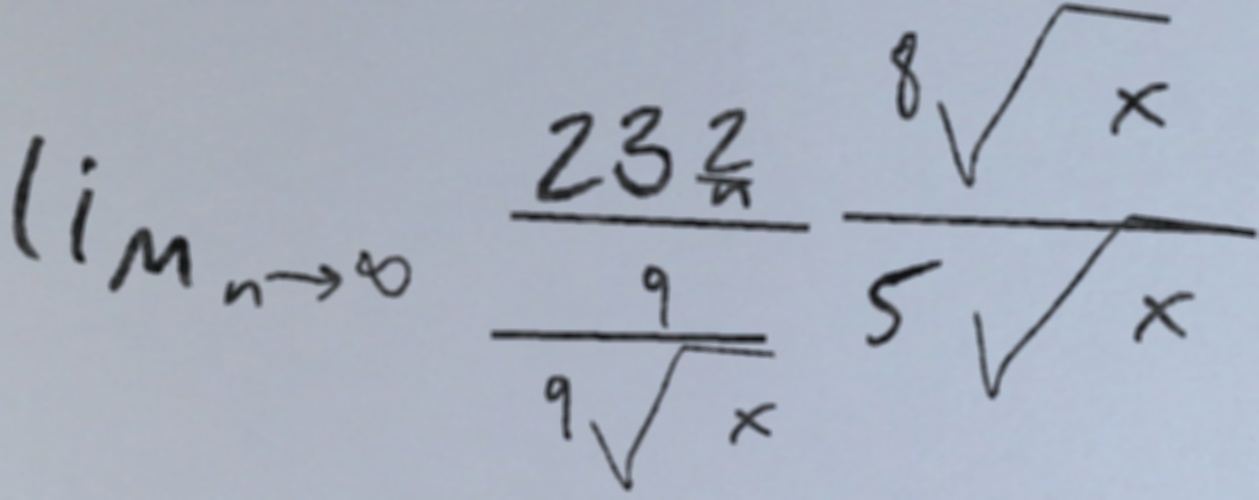 lim n→∞ 23 2/n / 9 / 9√x 8√x / 5√x